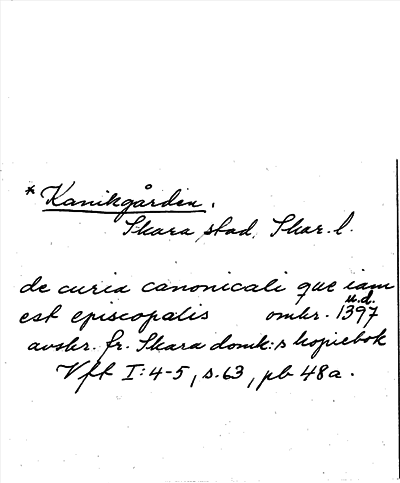 * Kanikgården.
Skara stad, Skar. l.
de curia canonicali que iam
u.d.
est episcopalis omkr. 1397
avskr. fr. Skara domk:s kopiebok
Vft I:4-5, s.63, pb 48a.